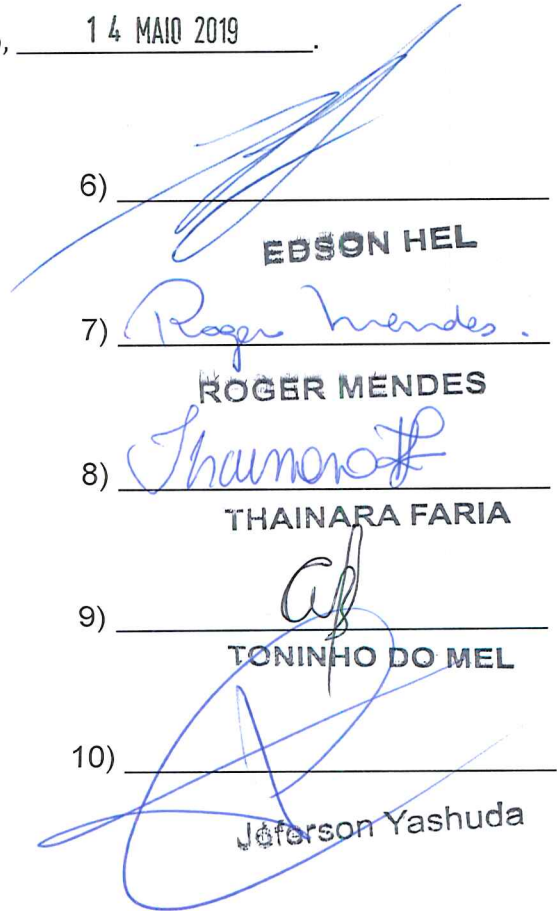 , 14 MAIO 2019.
6)
EDSON HEL
7) Roger Mendes.
ROGER MENDES
8)
THAINARA FARIA
9)
TONINHO DO MEL
10)
Jéferson Yashuda